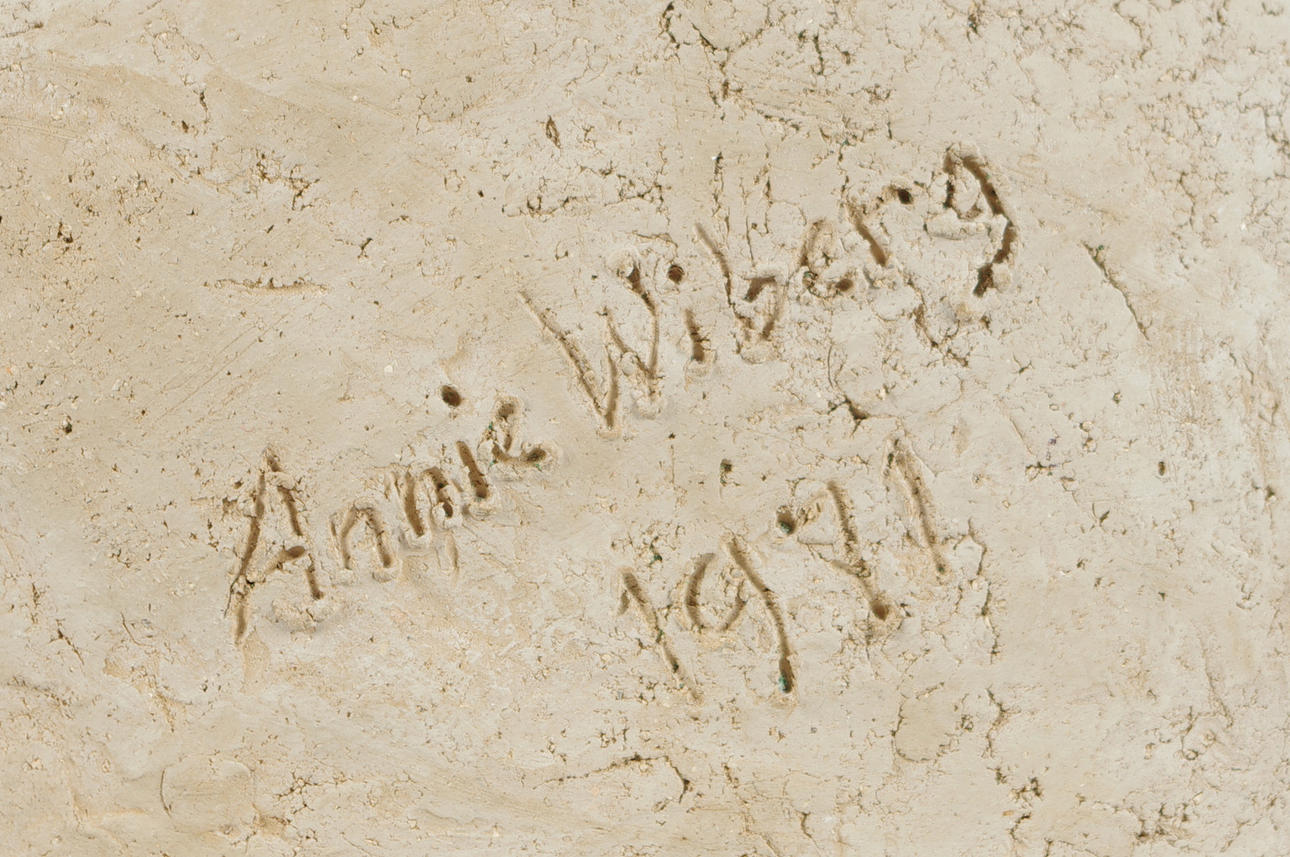 Annie Wiberg
1971